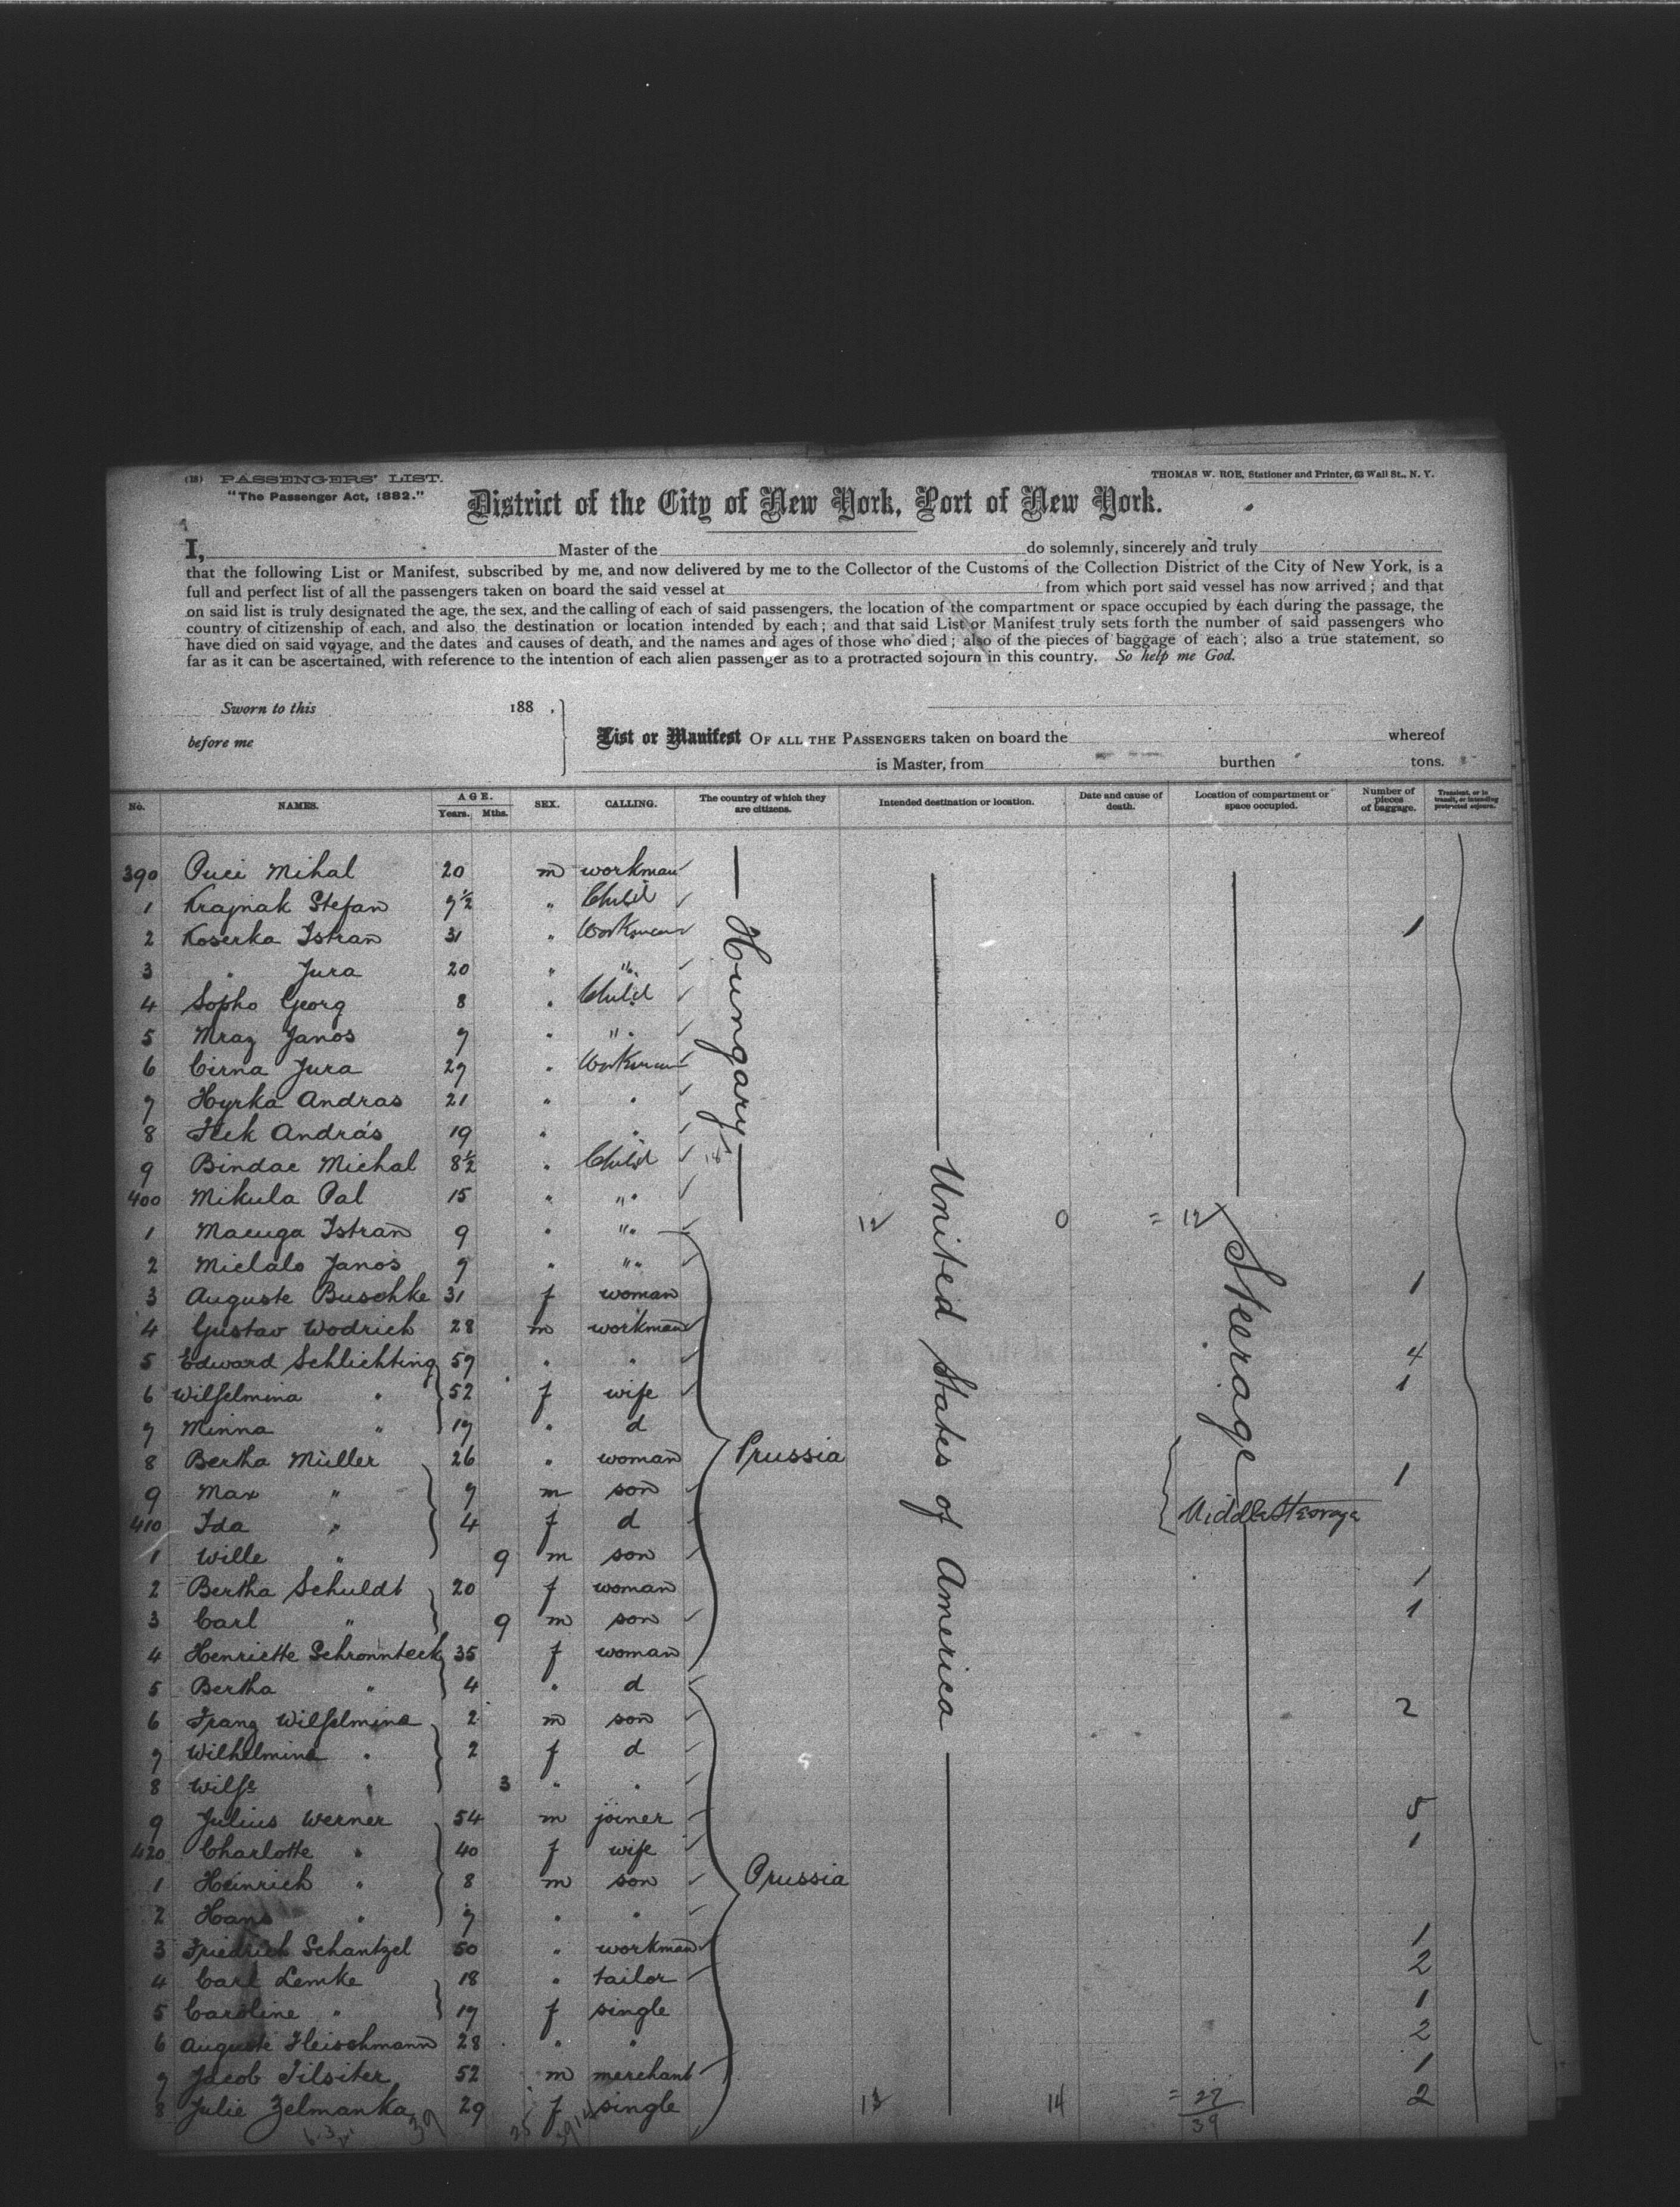 (18) PASSENGERS' LIST.
THOMAS W. ROE, Stationer and Printer, 63 Wall St., N. Y.
"The Passenger Act, 1882."
District of the City of New York, Port of New York.
I, Master of the do solemnly, sincerely and truly
that the following List or Manifest, subscribed by me, and now delivered by me to the Collector of the Customs of the Collection District of the City of New York, is a
full and perfect list of all the passengers taken on board the said vessel at from which port said vessel has now arrived; and that
on said list is truly designated the age, the sex, and the calling of each of said passengers, the location of the compartment or space occupied by each during the passage, the
country of citizenship of each, and also the destination or location intended by each; and that said List or Manifest truly sets forth the number of said passengers who
have died on said voyage, and the dates and causes of death, and the names and ages of those who died; also of the pieces of baggage of each; also a true statement, so
far as it can be ascertained, with reference to the intention of each alien passenger as to a protracted sojourn in this country. So help me God.
Sworn to this 188 ,
before me
List or Manifest OF ALL THE PASSENGERS taken on board the whereof
is Master, from burthen tons.
No. NAMES. AGE. Years. Mths. SEX. CALLING. The country of which they are citizens. Intended destination or location. Date and cause of death. Location of compartment or space occupied. Number of pieces of baggage. Transient, or in transit, or intending protracted sojourn.
Hungary
United States of America
Steerage
390 Puci Mihal 20 m workman
1 Krajnak Stefan 9½ " Child
2 Koserka Istran 31 " Workman 1
3 " Jura 20 " "
4 Sopho Georg 8 " Child
5 Mraz Janos 9 " "
6 Cirna Jura 29 " Workman
7 Hyrka Andras 21 " "
8 Flek András 19 " "
9 Bindac Michal 8½ " Child
400 Mikula Pal 15 " "
1 Macuga Istran 9 " " 12 0 = 12
2 Mielalo Janos 9 " "
3 Auguste Buschke 31 f woman 1
4 Gustav Wodrich 28 m workman
5 Edward Schlichting 59 " " 4
6 Wilhelmina " 52 f wife 1
7 Minna " 19 " d
8 Bertha Müller 26 " woman Prussia 1
9 Max " 9 m son
410 Ida " 4 f d Middle Steerage
1 Wille " 9 m son
2 Bertha Schuldt 20 f woman 1
3 Carl " 9 m son 1
4 Henriette Schronnteck 35 f woman
5 Bertha " 4 " d
6 Franz Wilhelmine 2 m son 2
7 Wilhelmine " 2 f d
8 " 3 " "
9 Julius Werner 54 m joiner 5
420 Charlotte " 40 f wife 1
1 Heinrich " 8 m son Prussia
2 Hans " 7 " "
3 Friedrich Schantzel 50 " workman 1
4 Carl Lemke 18 " tailor 2
5 Caroline " 19 f single 1
6 Auguste Fleischmann 28 " " 2
7 Jacob Tilsiter 52 m merchant 1
8 Julie Zelmanka 29 f single 13 14 = 27 2
39